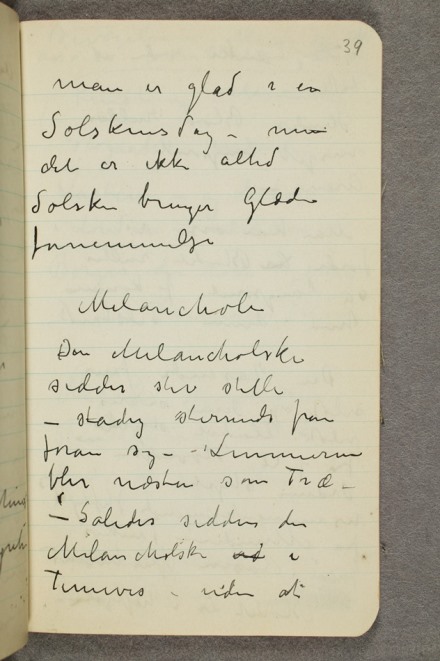 39
man er glad i en
Solskinsdag – men
det er ikke altid
Solsken bringer Glæde
fornemmelse
Melancholi
Den Melancholske
sidder stiv stille
– stadig stirrende
foran sig – – Lemmerne
blir næsten som Træ –
– Således sidder den
Melancholske i
Timevis – uden at